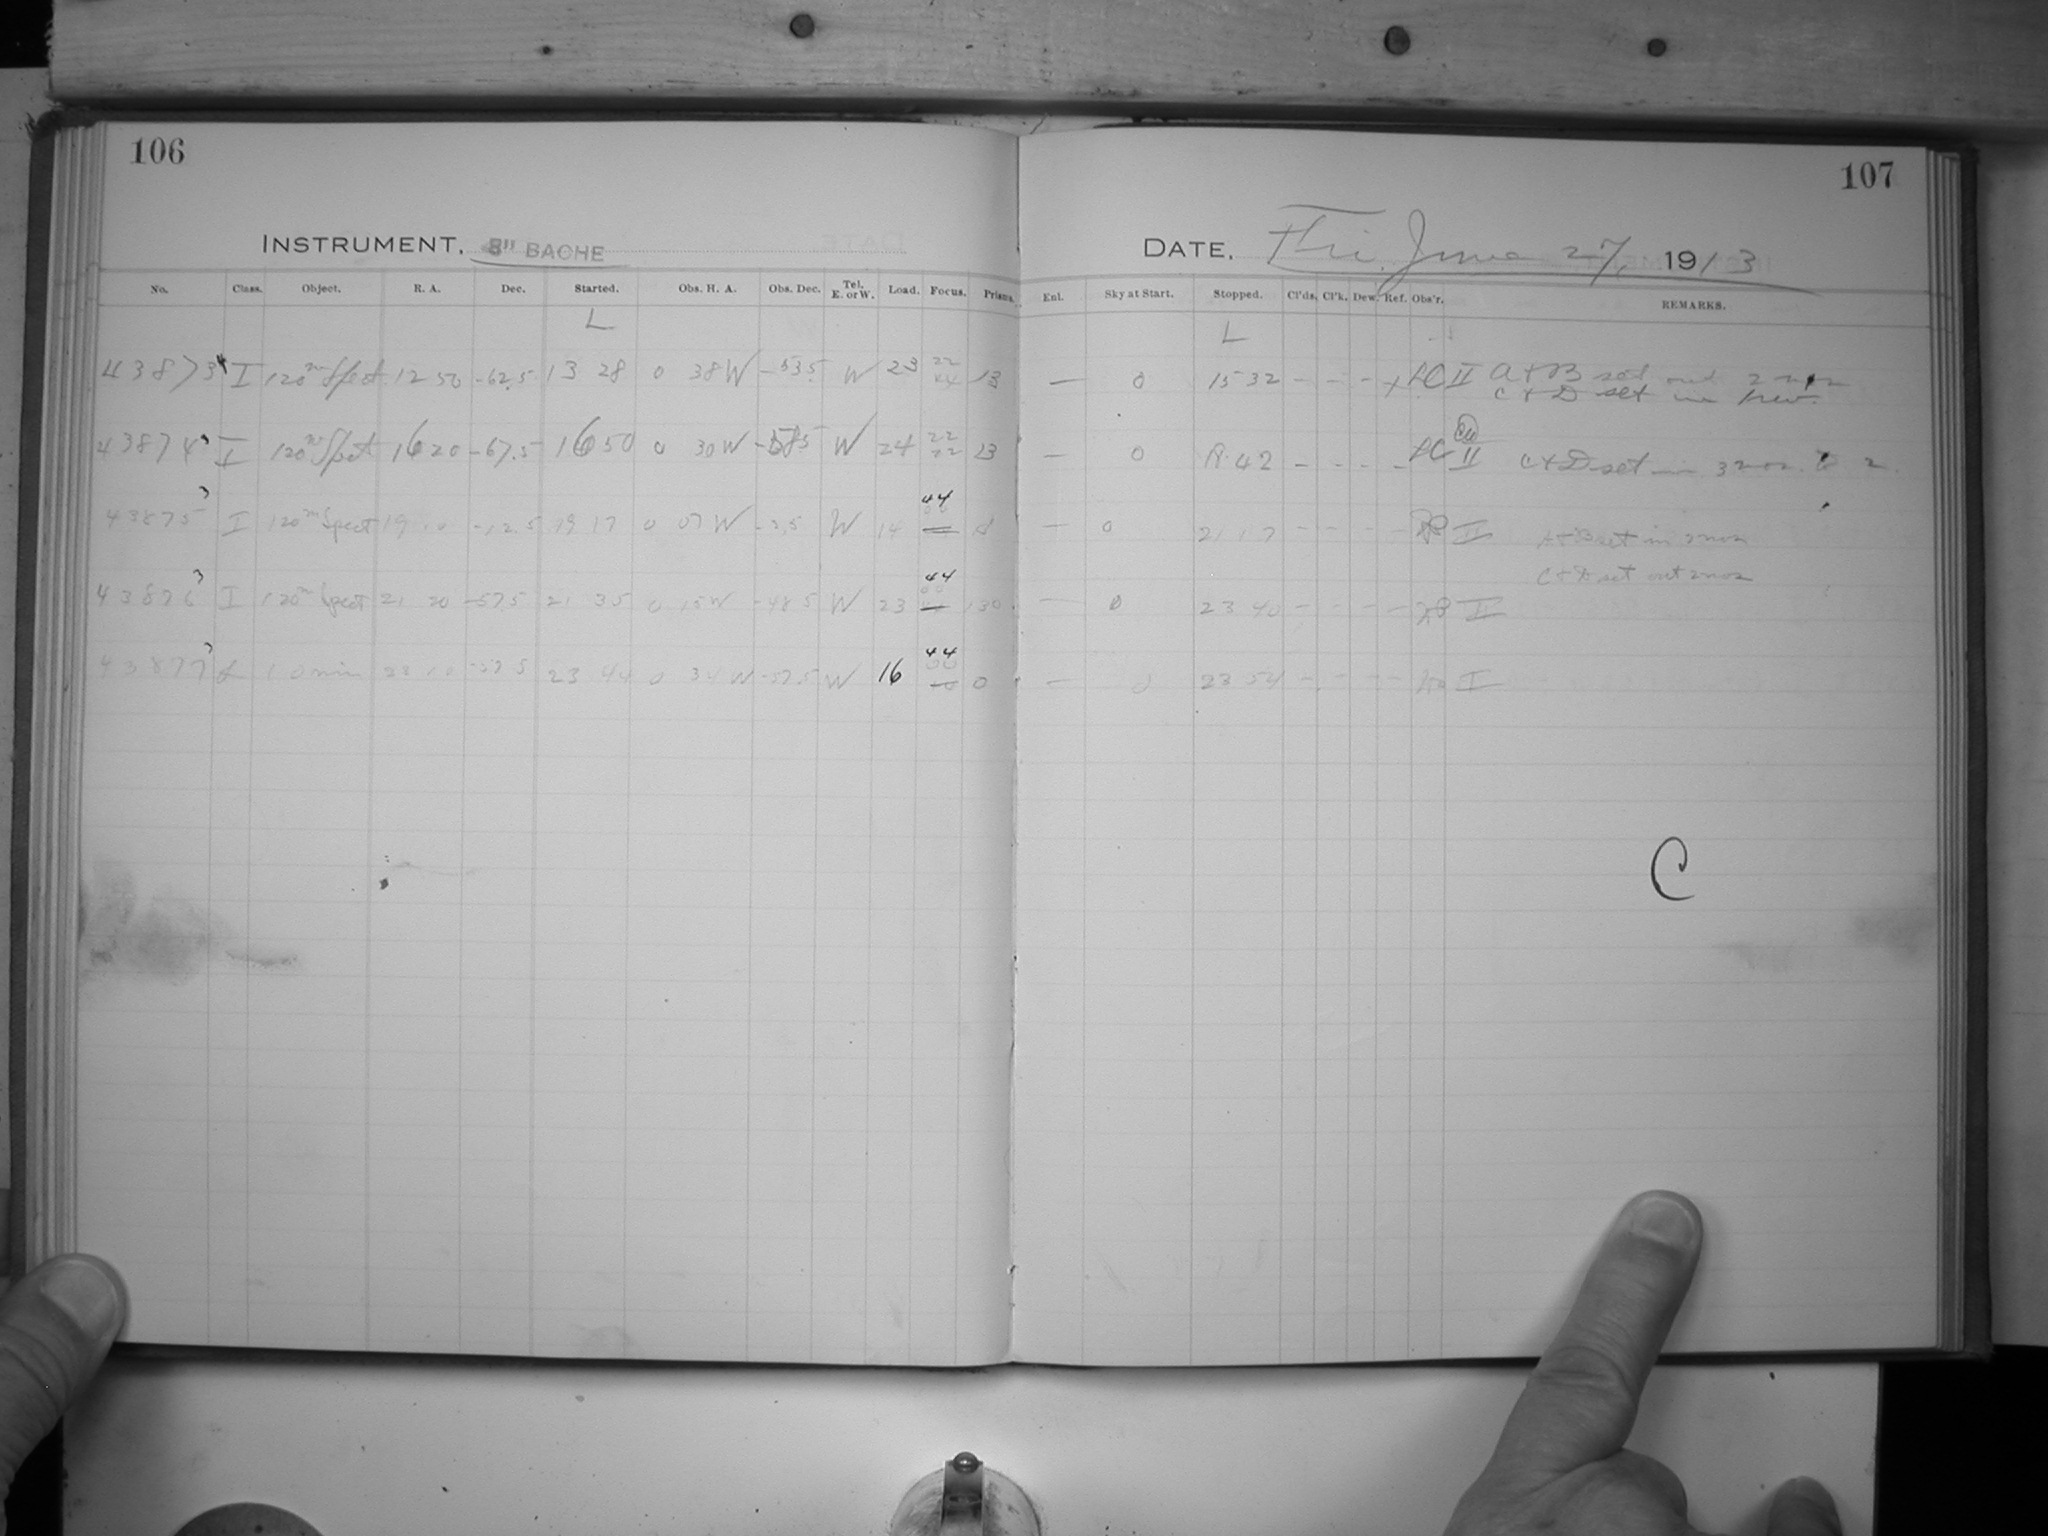 106
107
INSTRUMENT. 8" BACHE
DATE. Fri. June 27, 1913
No. Class. Object. R. A. Dec. Started. Obs. H. A. Obs. Dec. Tel. E. or W. Load. Focus. Prisms. Enl. Sky at Start. Stopped. Cl'ds. Cl'k. Dew. Ref. Obs'r. REMARKS.
L L
43873 I 120m Spect 12 50 -62.5 13 28 0 38 W -53.5 W 23 22 44 13 — 0 15 32 - - - II A + B set out 2
C + D set in
43874 I 120m Spect 16 20 -67.5 16 50 0 30 W -58.5 W 24 22 13 — 0 18 42 - - - - II C + D set in 3
43875 I 120m Spect 19 10 -12.5 19 17 0 07 W W 14 44 — 0 21 17 - - - - II A + B set in
C + D set out
43876 I 120m Spect 21 20 -57.5 21 35 0 15 W -48.5 W 23 44 — 0 23 40 - - - - II
43877 10 min 23 10 -57.5 23 44 0 34 W -57.5 W 16 44 0 — 0 23 54 - - - - I
C